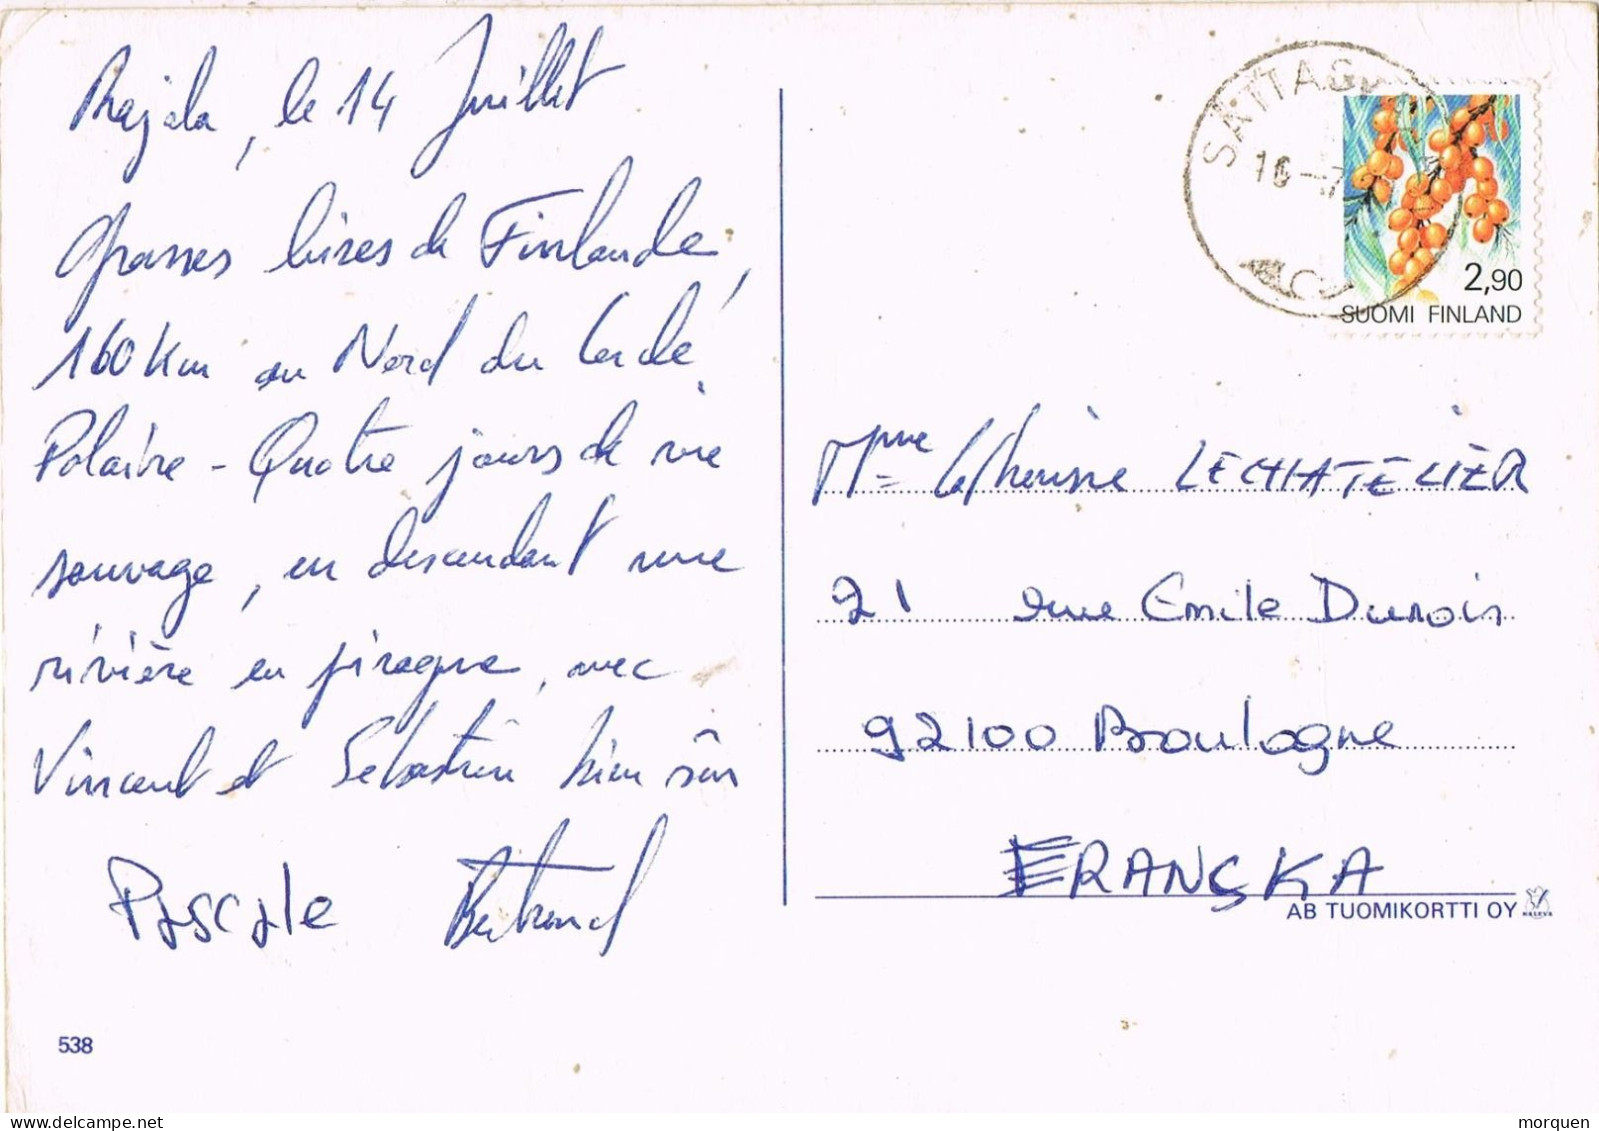 Rajala, le 14 Juillet
Grosses bises de Finlande,
160 Km au Nord du Cercle
Polaire - Quatre jours de vie
sauvage, en descendant une
rivière en pirogue, avec
Vincent et Sébastien bien sûr
Pascale Bertrand
538
16 -7
2,90
SUOMI FINLAND
Mme Catherine LECHATELIER
21 rue Emile Duno is
92100 Boulogne
FRANSKA
AB TUOMIKORTTI OY
KALEVA
morquen